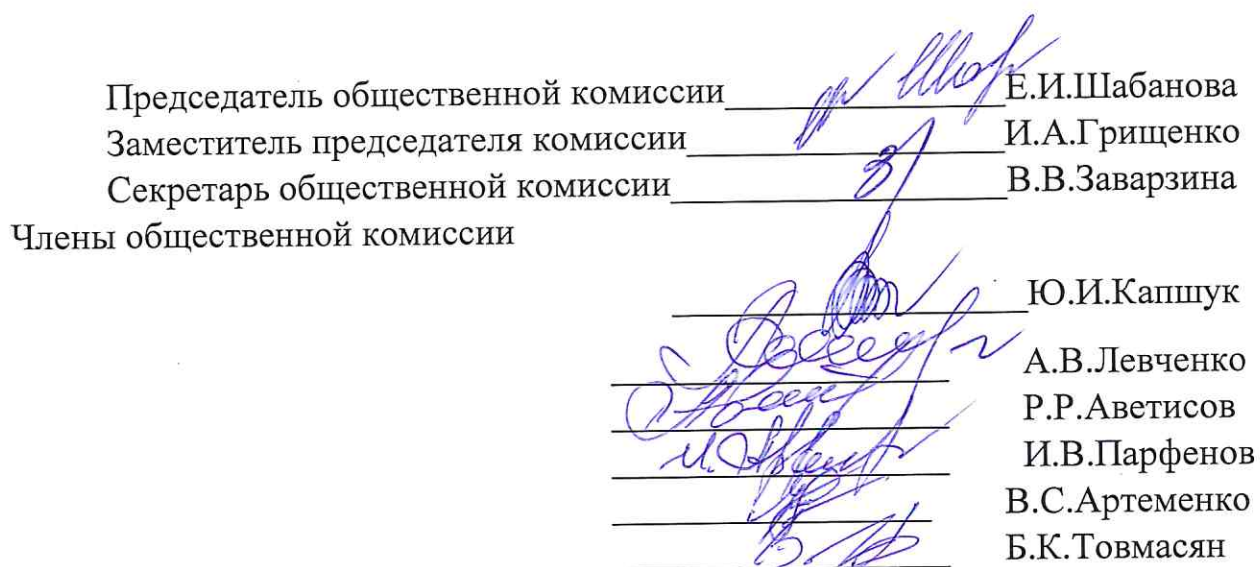 Председатель общественной комиссии Е.И.Шабанова
Заместитель председателя комиссии И.А.Грищенко
Секретарь общественной комиссии В.В.Заварзина
Члены общественной комиссии
Ю.И.Капшук
А.В.Левченко
Р.Р.Аветисов
И.В.Парфенов
В.С.Артеменко
Б.К.Товмасян